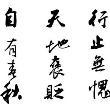 行止無愧
天地褒貶
自有春秋